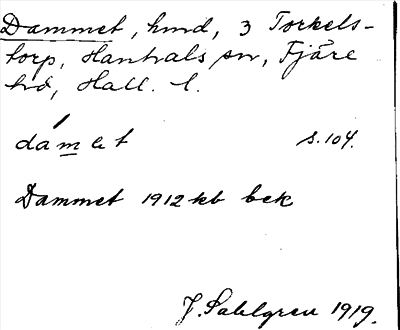 Dammet, hmd, 3 Torkels-
torp, Hanhals sn, Fjäre
hd, Hall. l.
damet s. 104.
Dammet 1912 kb bek
J. Sahlgren 1919.